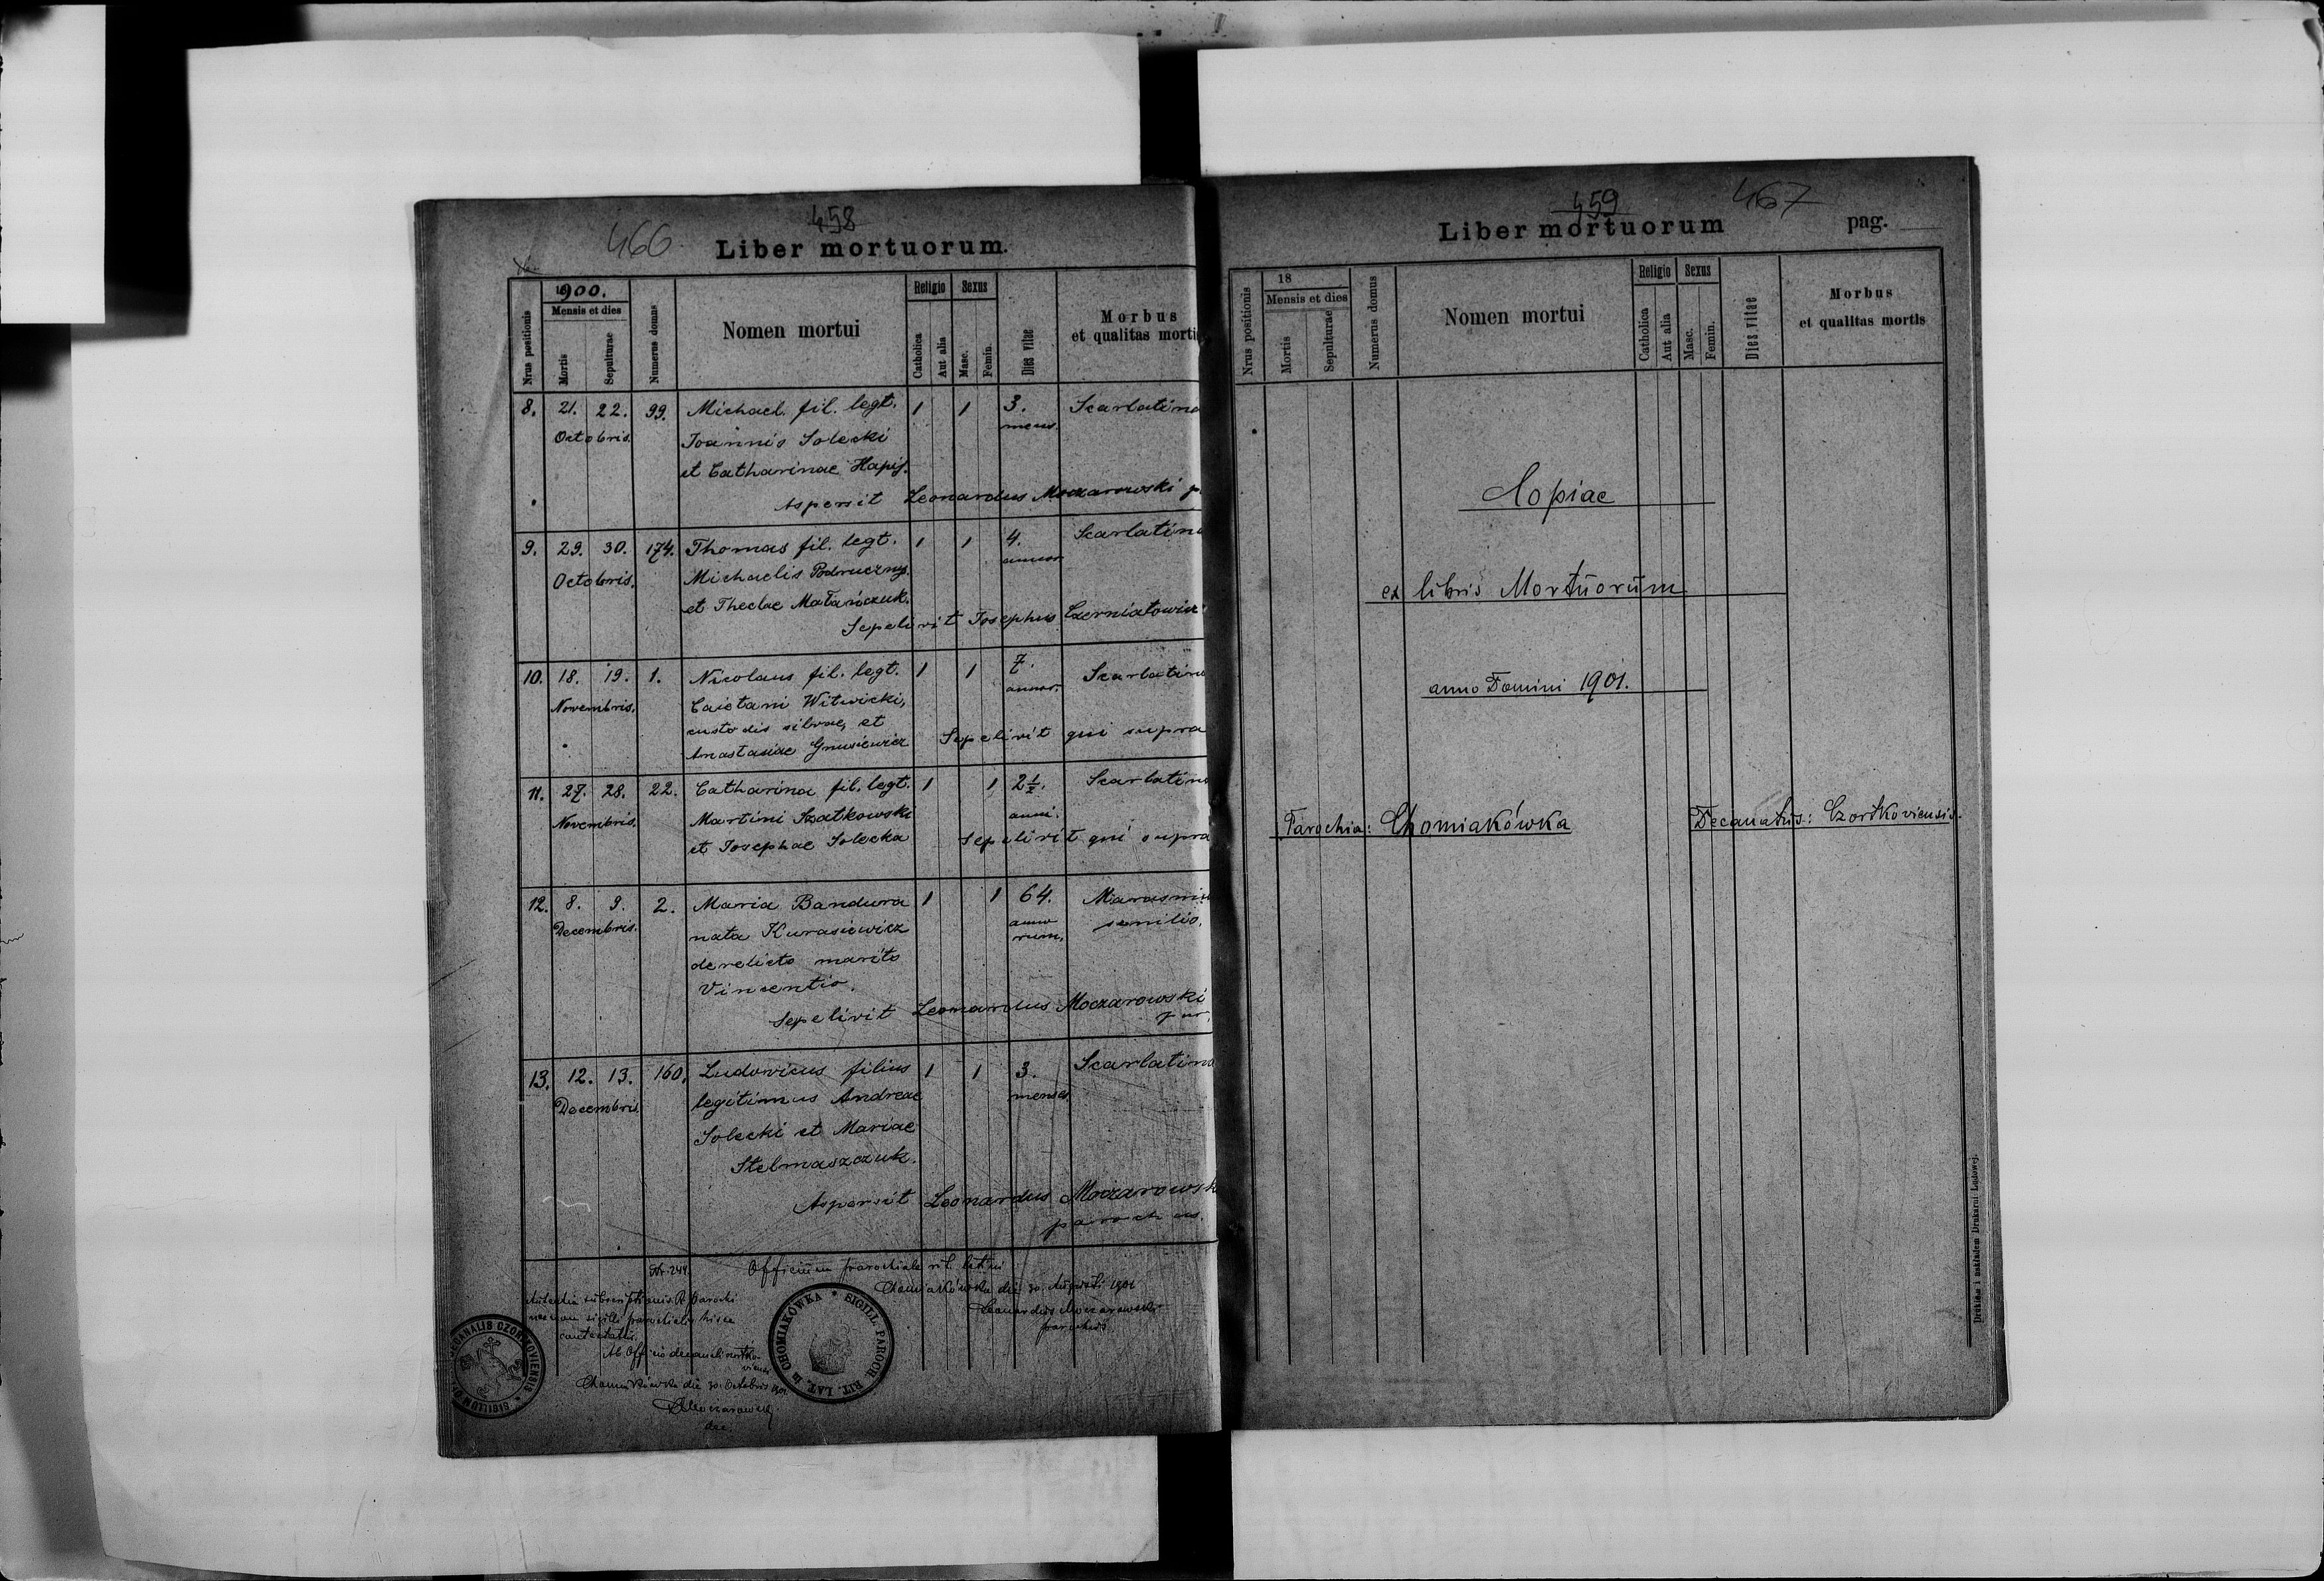 458
466
Liber mortuorum.
Nrus positionis
1900.
Mensis et dies
Mortis
Sepulturae
Numerus domus
Nomen mortui
Religio
Catholica
Aut alia
Sexus
Masc.
Femin.
Dies vitae
Morbus
et qualitas morti
8. 21. 22. 99. Michael fil. legt. 1 1 3. Scarlatina
Octobris. Joannis Solecki mens.
et Catharinae Hapij.
Aspersit Leonardus Moczarowski p
9. 29. 30. 174. Thomas fil. legt. 1 1 4. Scarlatina
Octobris. Michaelis Podruczny annor
et Theclae Matańczuk.
Sepelivit Josephus Czerniatowicz
10. 18. 19. 1. Nicolaus fil. legt. 1 1 7. Scarlatina
Novembris. Caietani Witwicki, annor.
custodis silvae, et
Anastasiae Gnusiewicz Sepelivit qui supra
11. 27. 28. 22. Catharina fil. legt. 1 1 2½. Scarlatina
Novembris. Martini Szatkowski anni.
et Josephae Solecka Sepelivit qui supra
12. 8. 9. 2. Maria Bandura 1 1 64. Marasmu
Decembris. nata Kurasiewicz anno senilis.
derelicto marito rum.
Vincentio.
Sepelivit Leonardus Moczarowski
par.
13. 12. 13. 160. Ludovicus filius 1 1 3. Scarlatina
Decembris legitimus Andreae menses.
Solecki et Mariae
Stelmaszczuk.
Aspersit Leonardus Moczarowsk
parochus.
Nr. 244. Officium parochiale rit. latini
Chomiakówka die 30. Augusti 1901
Leonardus Moczarowski
parochus
parochialis hisce
Ab Officio decanali czortko-
viensi
Chomiakówka die 30. Octobris 1901
LMoczarowski
dec.
SIGILLUM DECANALIS CZORTKOVIENSIS
SIGILL. PAROCH RIT. LAT. in CHOMIAKÓWKA
459
467
Liber mortuorum
pag.
Nrus positionis
18
Mensis et dies
Mortis
Sepulturae
Numerus domus
Nomen mortui
Religio
Catholica
Aut alia
Sexus
Masc.
Femin.
Dies vitae
Morbus
et qualitas mortis
Copiae
ex libris Mortuorum
anno Domini 1901.
Parochia: Chomiakówka Decanatus: Czortkoviensis.
Drukiem i nakładem Drukarni Ludowej.